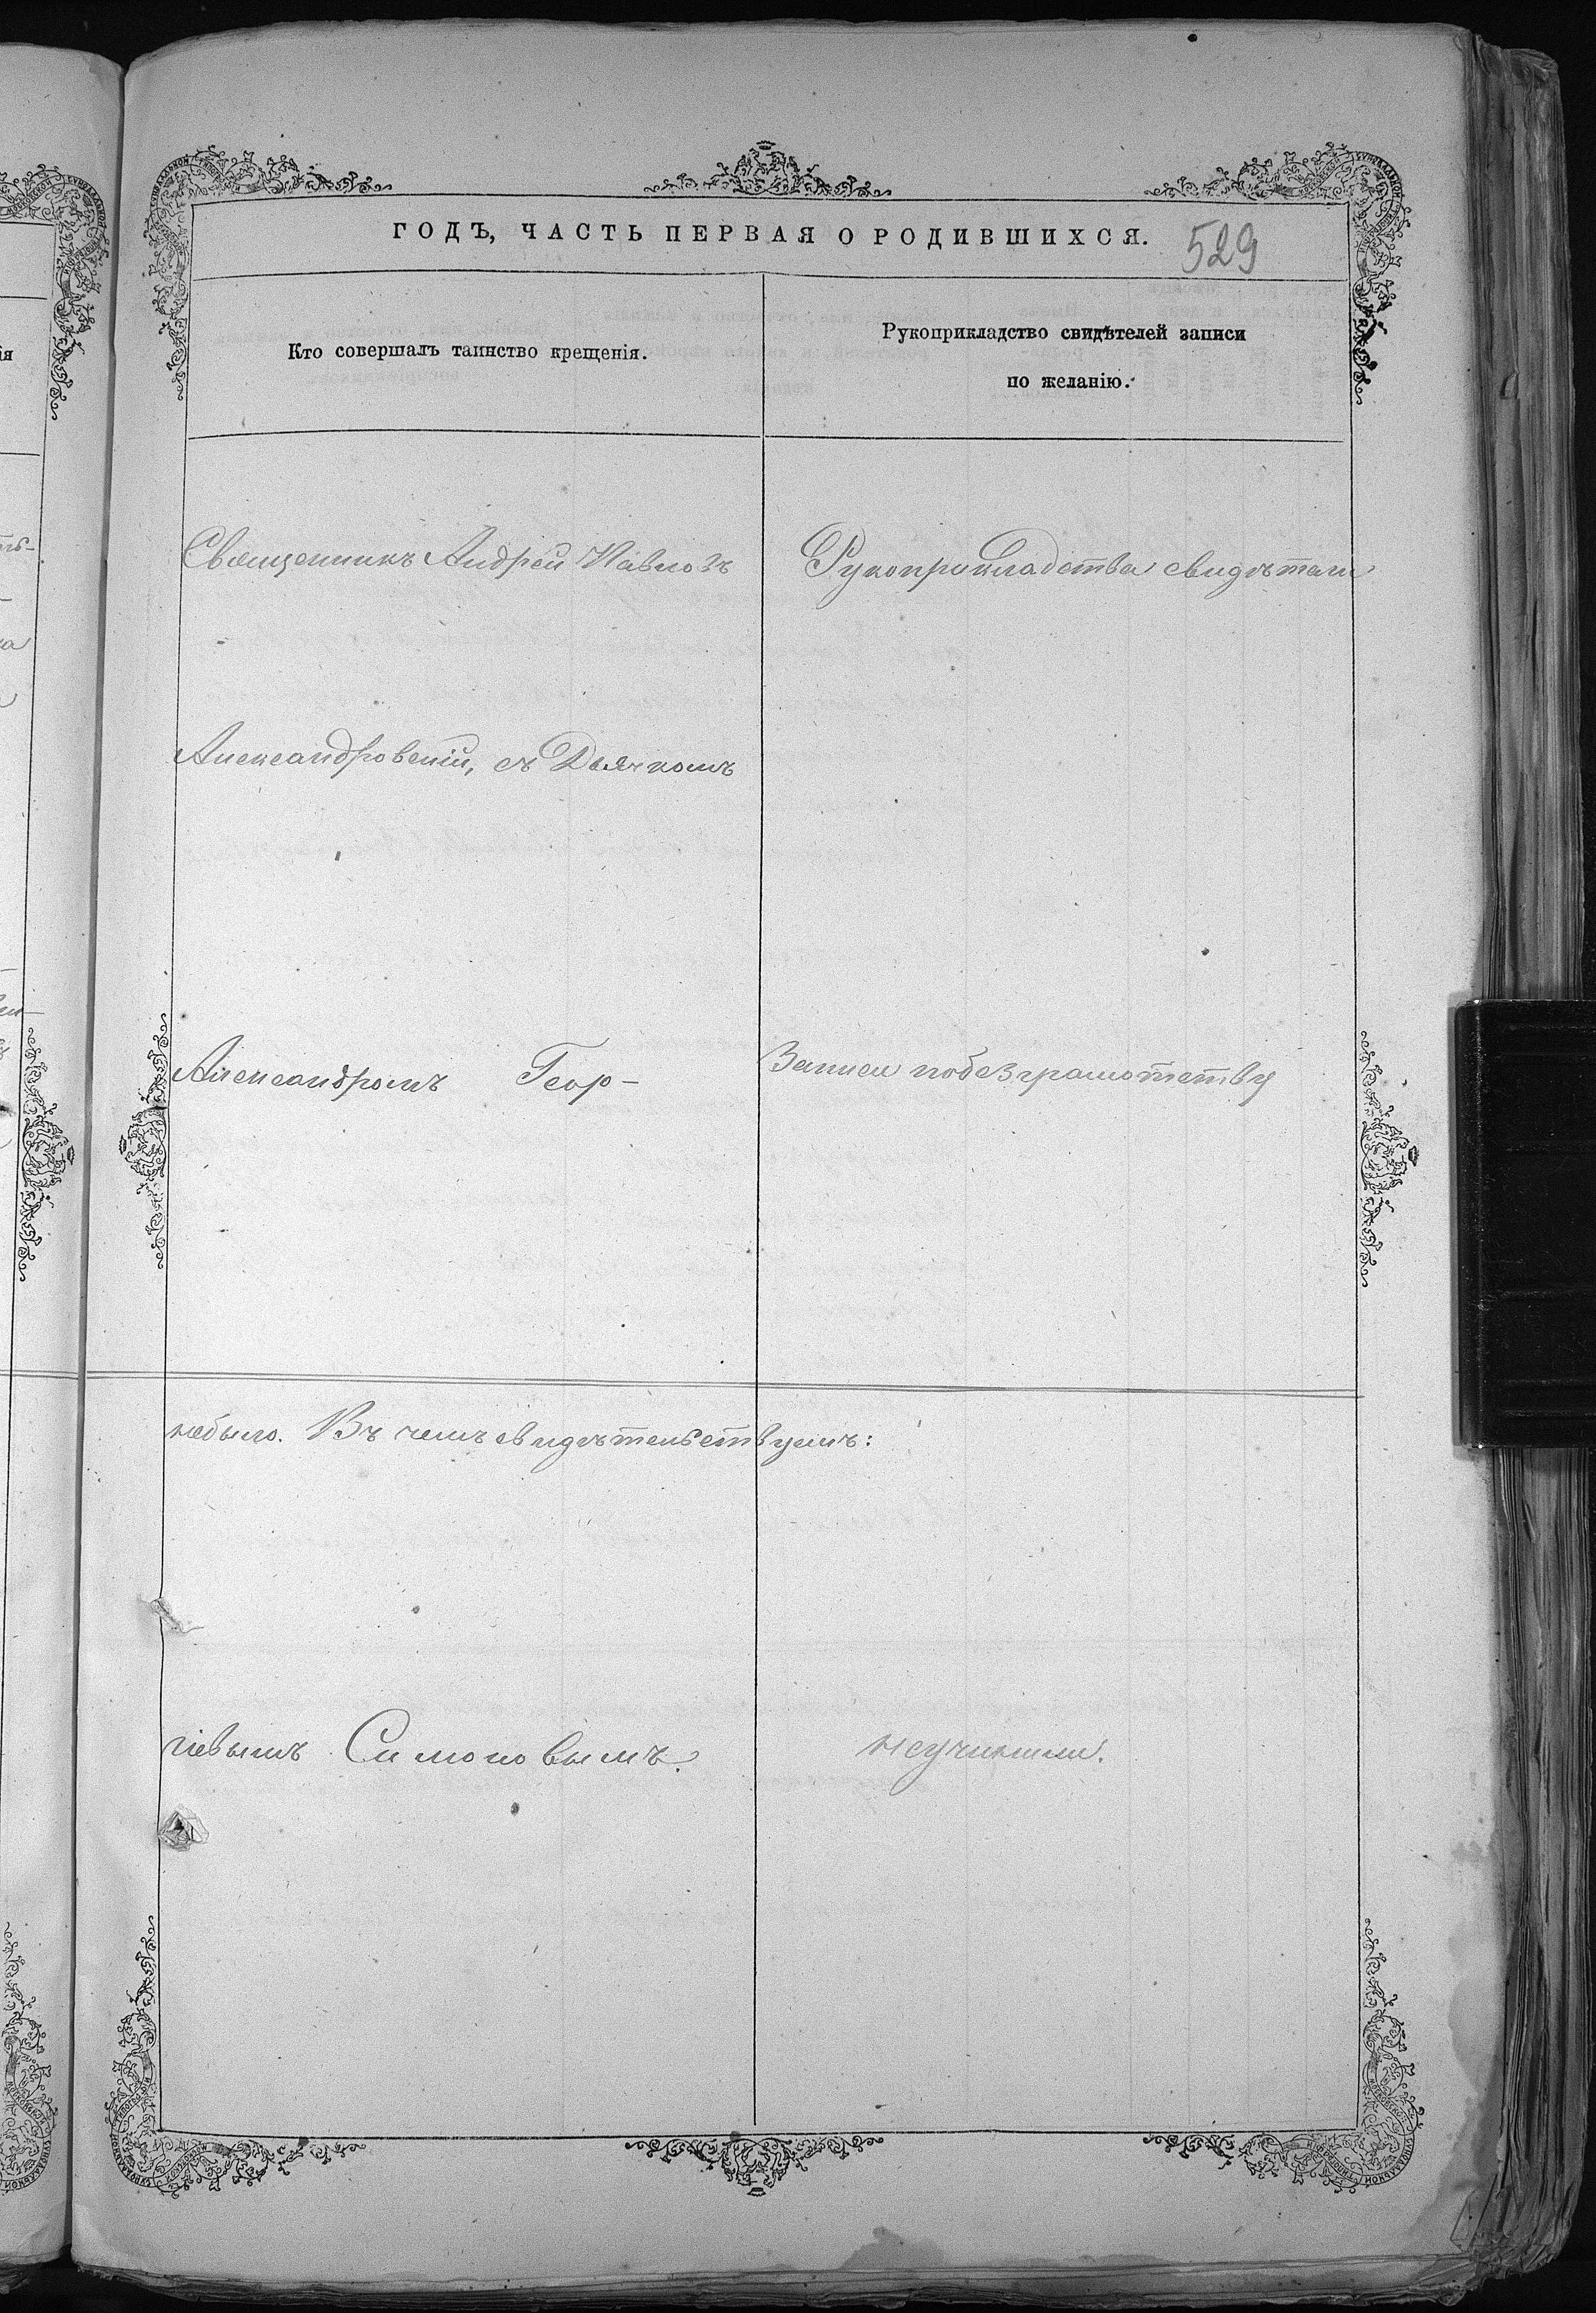 ГОДЪ, ЧАСТЬ ПЕРВАЯ О РОДИВШИХСЯ.
529
Кто совершалъ таинство крещенія.
Рукоприкладство свидѣтелей записи
по желанію.
Священникъ Андрей Павловъ
Александровскій, съ Дьячкомъ
Александромъ Геор-
гіевымъ Симоновымъ.
Рукоприкладства свидѣтели
Записи по безграмотству
неучинили.
небыло. Въ чемъ свидѣтельствуемъ: